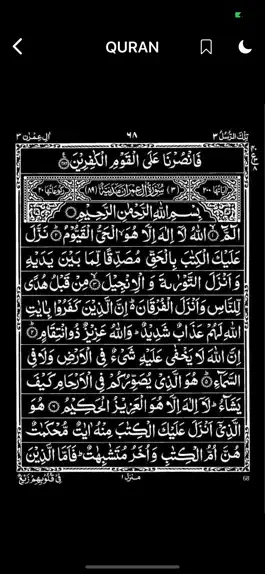 QURAN
تِلْكَ الرُّسُلُ ٣
٦٨
اٰلِ عِمْرٰن ٣
فَانْصُرْنَا عَلَى الْقَوْمِ الْكٰفِرِيْنَ
اٰيَاتُهَا ٢٠٠
(٣) سُوْرَةُ اٰلِ عِمْرٰنَ مَدَنِيَّةٌ (٨٩)
رُكُوْعَاتُهَا ٢٠
بِسْمِ اللّٰهِ الرَّحْمٰنِ الرَّحِيْمِ
الٓمّٓ ۙ اللّٰهُ لَاۤ اِلٰهَ اِلَّا هُوَ ۙ الْحَىُّ الْقَيُّوْمُ ؕ نَزَّلَ
عَلَيْكَ الْكِتٰبَ بِالْحَقِّ مُصَدِّقًا لِّمَا بَيْنَ يَدَيْهِ
وَ اَنْزَلَ التَّوْرٰىةَ وَ الْاِنْجِيْلَ ۙ مِنْ قَبْلُ هُدًى
لِّلنَّاسِ وَ اَنْزَلَ الْفُرْقَانَ ؕ اِنَّ الَّذِيْنَ كَفَرُوْا بِاٰيٰتِ
اللّٰهِ لَهُمْ عَذَابٌ شَدِيْدٌ ؕ وَ اللّٰهُ عَزِيْزٌ ذُو انْتِقَامٍ
اِنَّ اللّٰهَ لَا يَخْفٰى عَلَيْهِ شَىْءٌ فِى الْاَرْضِ وَ لَا فِى
السَّمَآءِ ؕ هُوَ الَّذِىْ يُصَوِّرُكُمْ فِى الْاَرْحَامِ كَيْفَ
يَشَآءُ ؕ لَاۤ اِلٰهَ اِلَّا هُوَ الْعَزِيْزُ الْحَكِيْمُ هُوَ
الَّذِىْۤ اَنْزَلَ عَلَيْكَ الْكِتٰبَ مِنْهُ اٰيٰتٌ مُّحْكَمٰتٌ
هُنَّ اُمُّ الْكِتٰبِ وَ اُخَرُ مُتَشٰبِهٰتٌ ؕ فَاَمَّا الَّذِيْنَ
منزل ١
فِىْ قُلُوْبِهِمْ زَيْغٌ
68